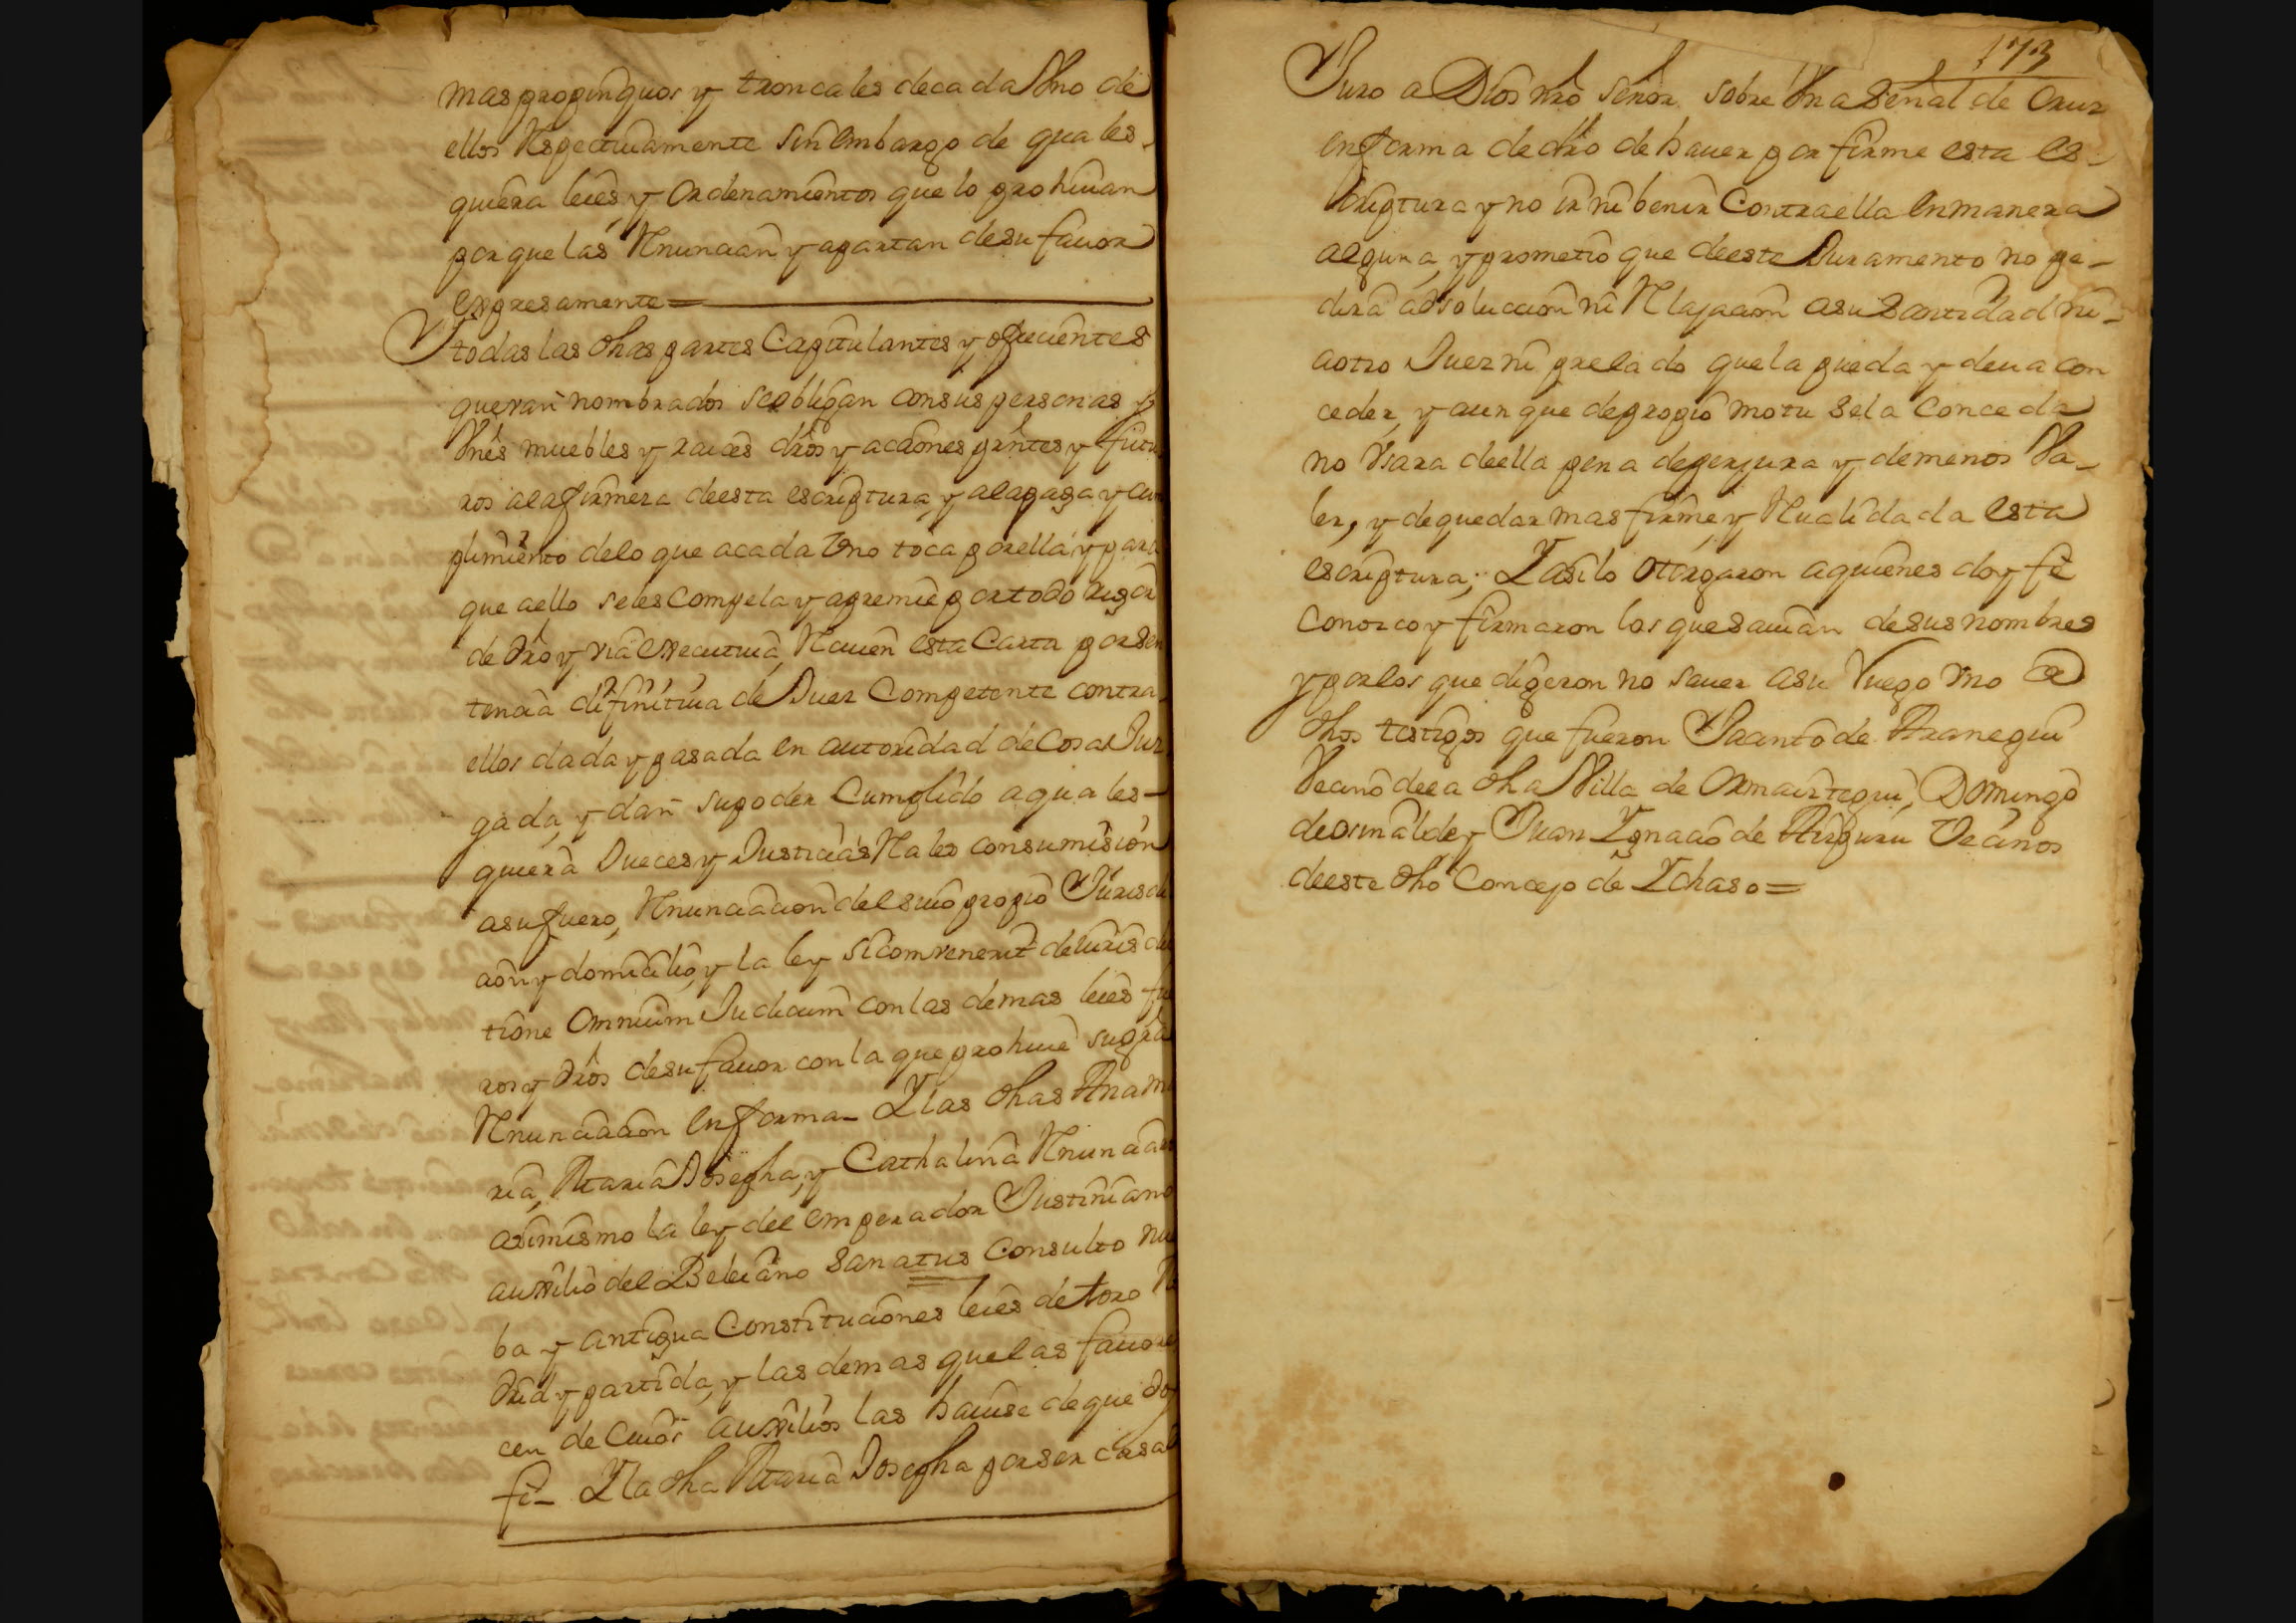 mas propinquos y troncales de cada Vno de
ellos Respectiuamente sin embargo de quales-
quiera leies y ordenamientos que lo prohiuan
porque las Renuncian y apartan de su fauor
expresamente=
Y todas las dhas partes Capitulantes y ofrecientes
que van nombrados se obligan con sus personas y
Vnes muebles y raices dros y acciones prntes y futu
ros a la firmeza de esta escriptura, y a la paga y cum
plimiento de lo que a cada Vno toca por ella y para
que a ello se les Compela y apremie por todo rigor
de dro y via executiua, Reciuen esta Carta por sen
tencia difinitiua de Juez Competente contra
ellos dada y pasada en autoridad de Cosa Juz
gada, y dan su poder Cumplido a quales-
quiera Jueces y Justicias Reales con sumision
a su fuero, Renunciacion del suio propio Jurisdi
cion y domicilio, y la ley si comvenerit de iurisdi
tione omnium Judicum con las demas leies fue
ros y dros de su fauor con la que prohiue su gra
Renunciacion en forma- Y las dhas Ana Ma
ria, Maria Josepha, y Cathalina Renuncian
asimismo la ley del emperador Justiniano
auxilio del Beleiano Sanatus Consulto nue
ba y antigua Constituciones leies de toro Ma
drid y partida, y las demas que las fauore
cen de Cuios auxilios las hauise de que doy
fe- Y la dha Maria Josepha por ser casada
173
Juro a Dios nro Señor sobre Vna Señal de Cruz
en forma de dro de hauer por firme esta es-
criptura y no ir ni benir Contra ella en manera
alguna, y prometio que de este Juramento no pe-
dira absolucion ni Relajacion a su Santidad ni-
a otro Juez ni prelado que la pueda y deua con
ceder, y aunque de propio motu se la Conceda
no Vsara de ella pena de perjura y de menos Va-
ler, y de quedar mas firme y Rualidada esta
escriptura; Y asi lo otorgaron a quienes doy fe
Conozco y firmaron los que sauian de sus nombres
y por los que dijeron no sauer a su Ruego Vno de
dhos testigos que fueron Jacinto de Aranegui
Vecino de la dha Villa de Ormaiztegui, Domingo
de Orinalde y Juan Ygnacio de Aizpuru Vecinos
de este dho Concejo de Ychaso=